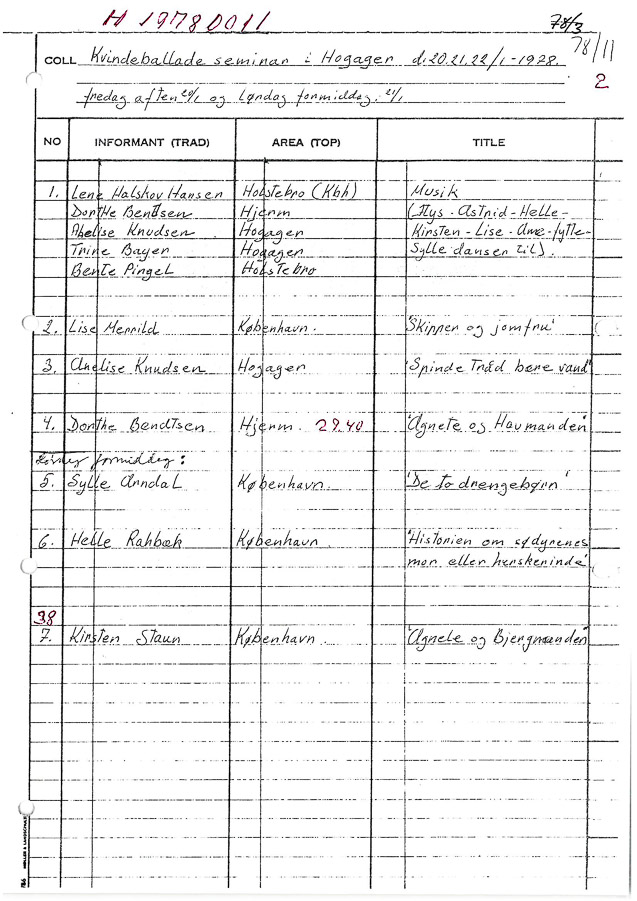 H 19780011
78/3
78/11
COLL Kvindeballade seminar i Hogager d. 20.21.22/1-1928.
2
fredag aften 20/1 og Lørdag formiddag. 21/1
NO INFORMANT (TRAD) AREA (TOP) TITLE
1. Lene Halskov Hansen Holstebro (Kbh) Musik
Dorthe Bendtsen Hjerm (Mys - Astrid - Helle -
Abelise Knudsen Hogager Kirsten - Lise - Ane - Jytte -
Trine Bayer Hogager Sylle danser til).
Bente Pingel Holstebro
2. Lise Merrild København. 'Skippen og jomfru'
3. Anelise Knudsen Hogager 'Spinde Tråd bære vand'
4. Dorthe Bendtsen Hjerm. 29.40 'Agnete og Havmanden'
Lørdag formiddag:
5. Sylle Arndal København. 'De to drengebørn'
6. Helle Rahbæk København. 'Historien om sødyrenes
mor eller herskerinde'
38
7. Kirsten Staun København. 'Agnete og Bjergmanden'
MØLLER & LANDSCHULTZ